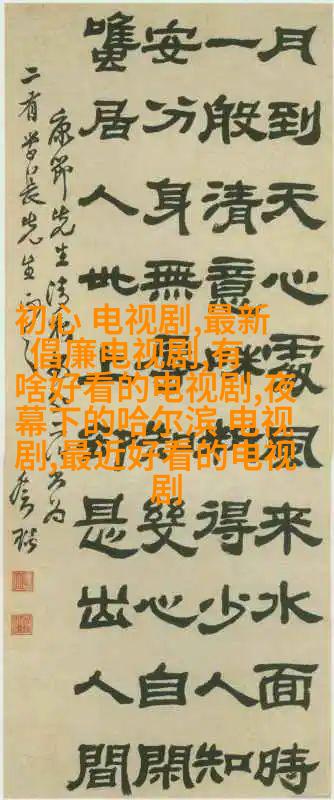 月到天心處風來水面時
一般清意味料得少人知
安分身無辱知幾心自閑
雖居人世上卻是出人間
康節先生清
長先生
初心 电视剧,最新
倡廉电视剧,有
啥好看的电视剧,夜
幕下的哈尔滨 电视
剧,最近好看的电视
剧